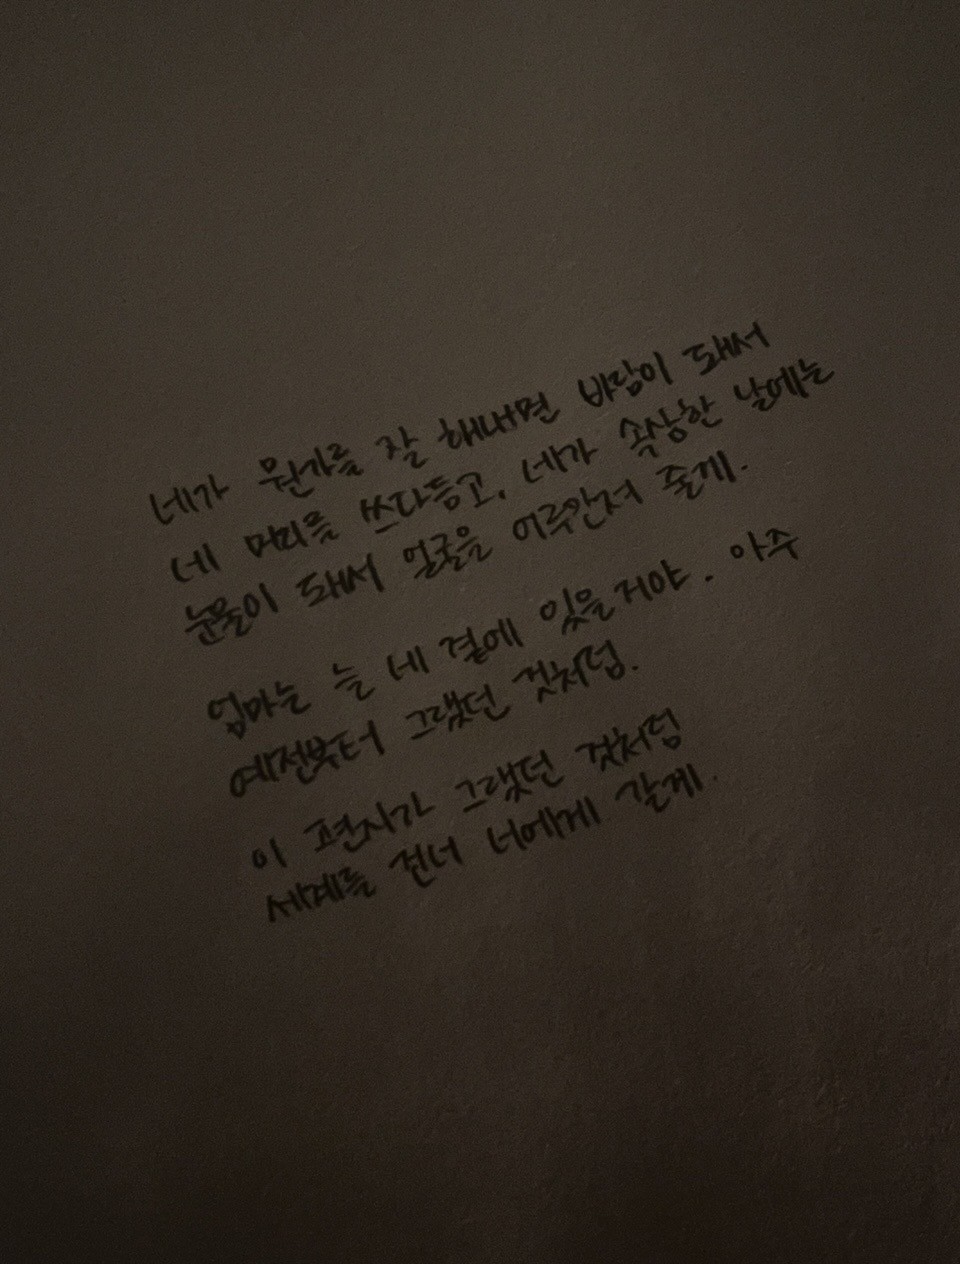 네가 뭔가를 잘 해내면 바람이 돼서
네 머리를 쓰다듬고, 네가 속상한 날에는
눈물이 돼서 얼굴을 어루만져 줄게.
엄마는 늘 네 곁에 있을거야. 아주
예전부터 그랬던 것처럼.
이 편지가 그랬던 것처럼
세계를 건너 너에게 갈게.